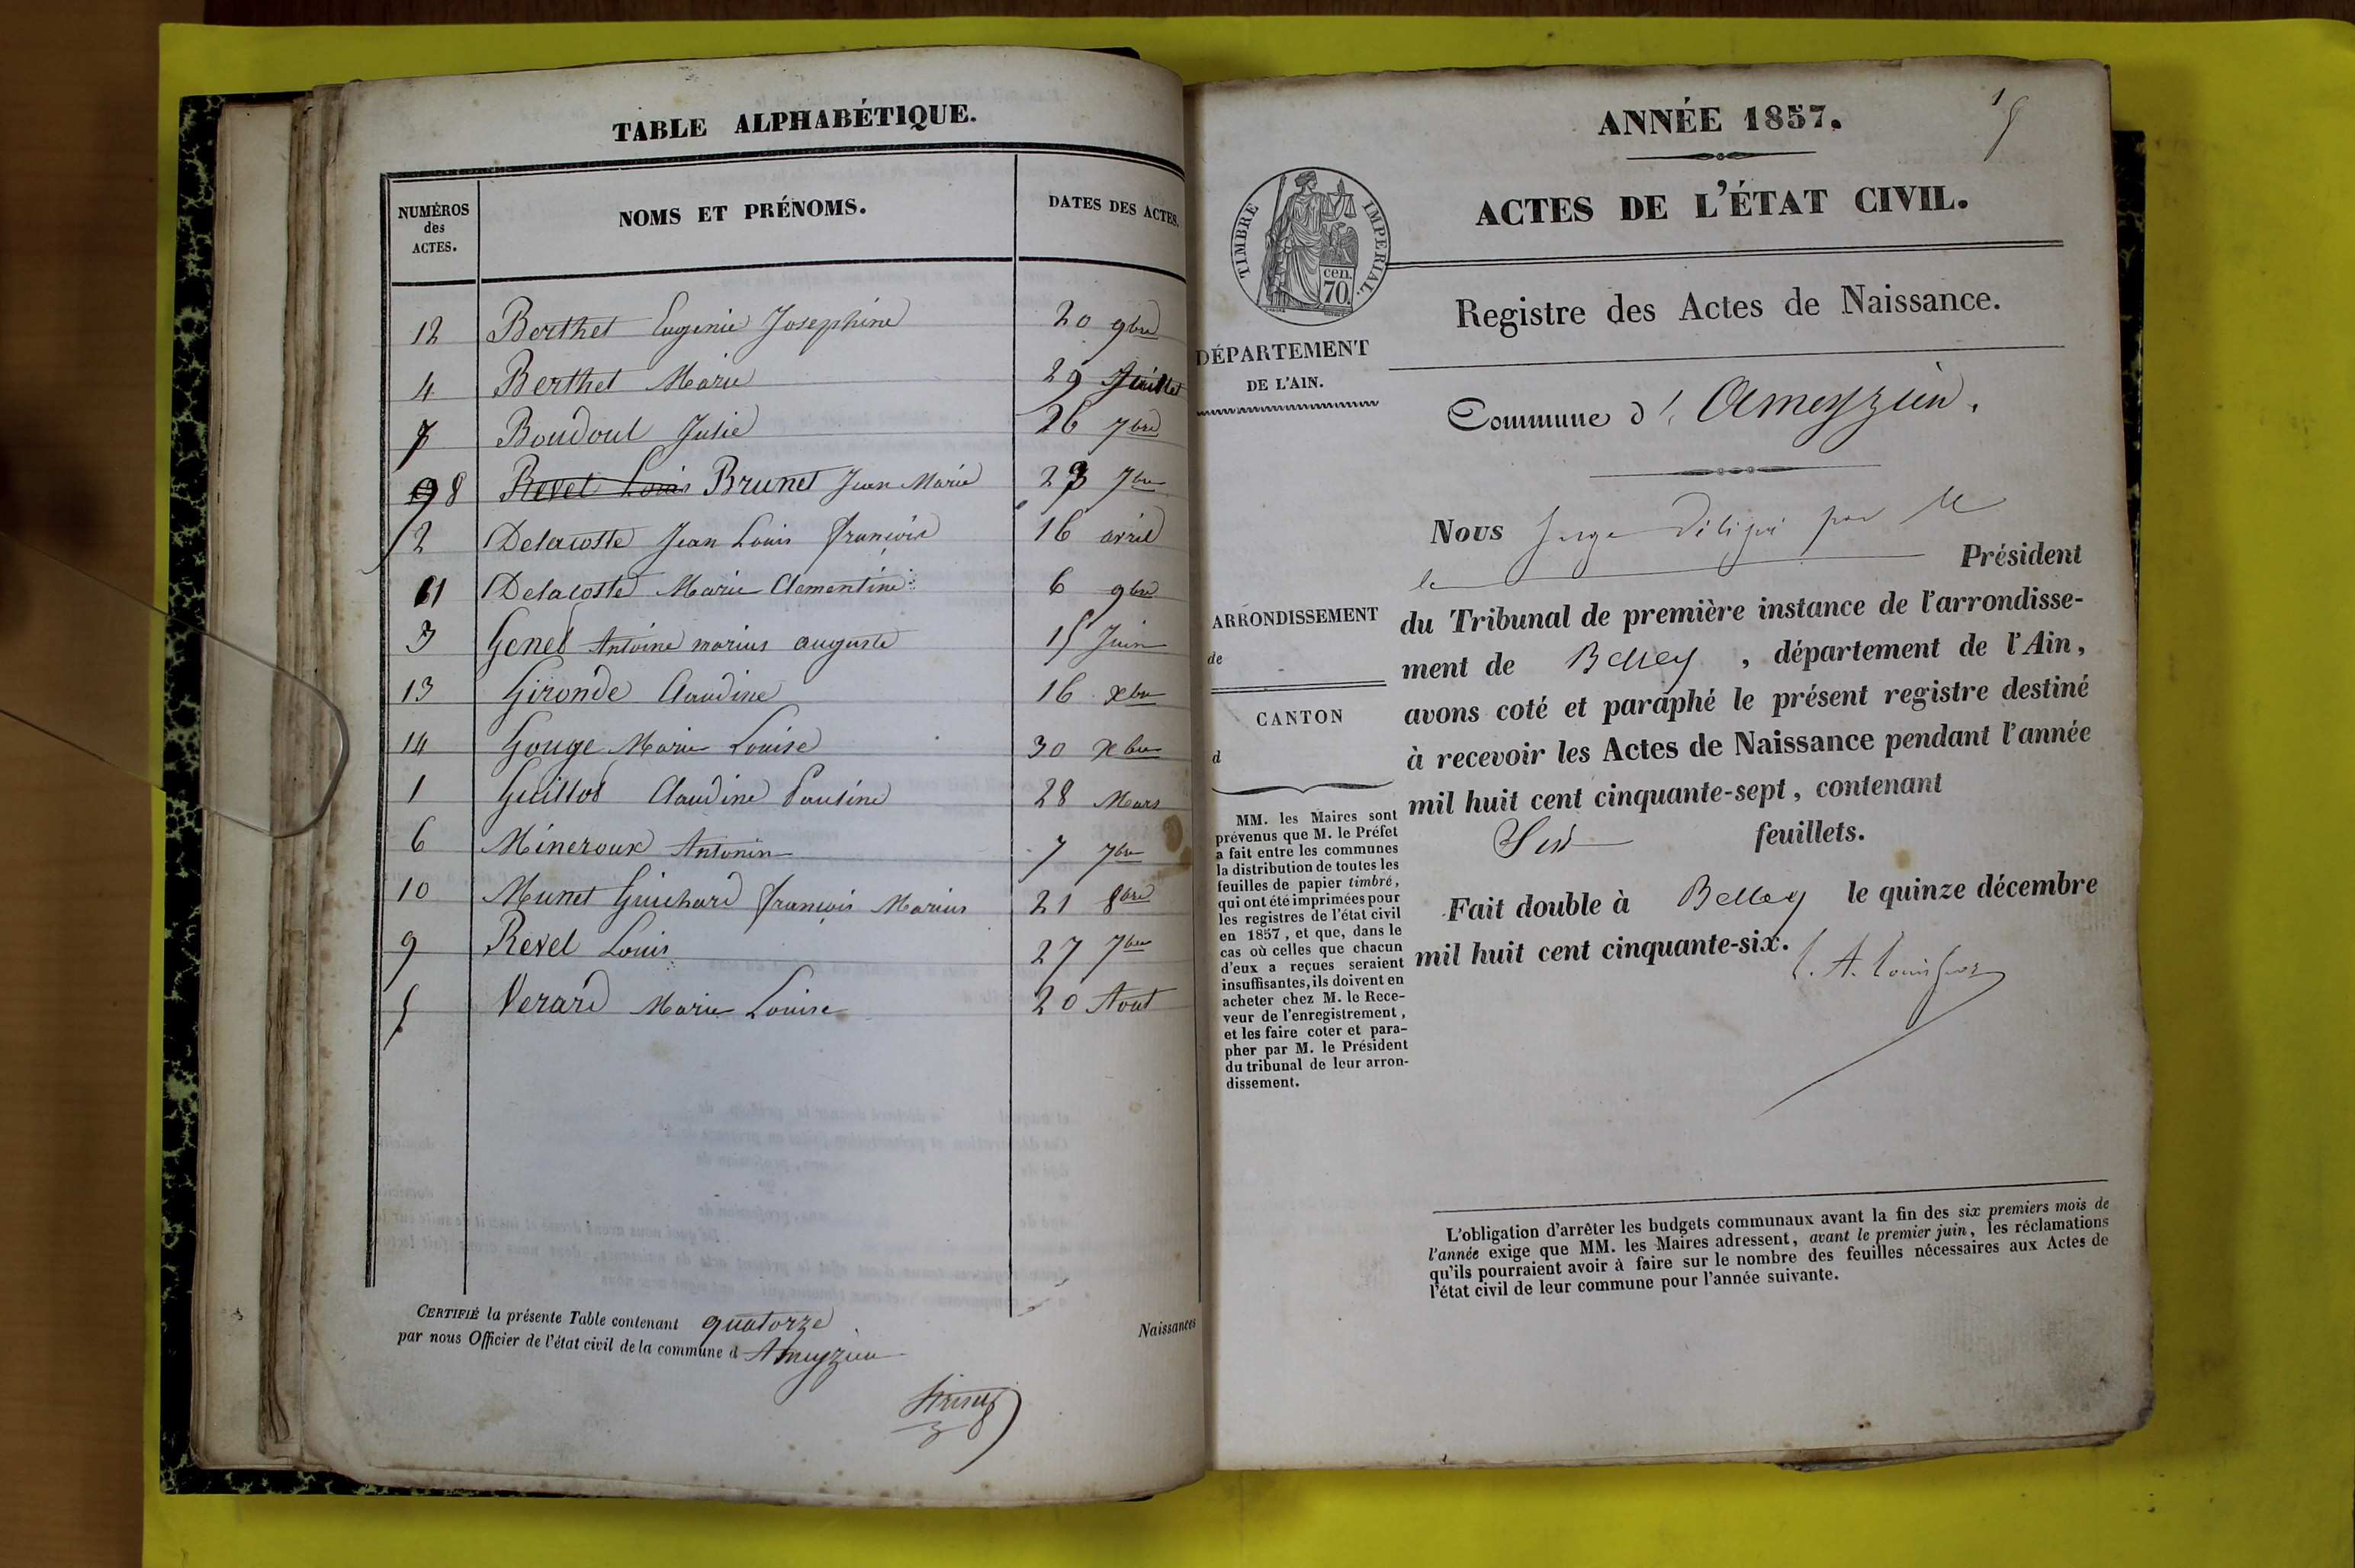 TABLE ALPHABÉTIQUE.
NUMÉROS des ACTES. NOMS ET PRÉNOMS. DATES DES ACTES.
12 Berthet Eugenie Josephine 20 9bre
4 Berthet Marie 29 Juillet
7 Boudoul Julie 26 7bre
9 8 Revel Louis Brunet Jean Marie 23 7bre
2 Delacoste Jean Louis françois 16 avril
11 Delacoste Marie Clementine 6 9bre
3 Genet Antoine marius auguste 15 Juin
13 Gironde Claudine 16 xbre
14 Gouge Marie Louise 30 xbre
1 Guillot Claudine Pauline 28 Mars
6 Mineroux Antonin 7 7bre
10 Munet Guichard françois Marius 21 8bre
9 Revel Louis 27 7bre
5 Verard Marie Louise 20 Aout
CERTIFIÉ la présente Table contenant quatorze
par nous Officier de l'état civil de la commune d Ameyzieu
Naissances
ANNÉE 1857.
1
ACTES DE L'ÉTAT CIVIL.
TIMBRE IMPERIAL.
cen.
70.
Registre des Actes de Naissance.
DÉPARTEMENT
DE L'AIN.
Commune d'Ameyzieu.
Nous Juge délégué par M
le Président
ARRONDISSEMENT
de
du Tribunal de première instance de l'arrondisse-
ment de Belley, département de l'Ain,
avons coté et paraphé le présent registre destiné
à recevoir les Actes de Naissance pendant l'année
mil huit cent cinquante-sept, contenant
Six feuillets.
Fait double à Belley le quinze décembre
mil huit cent cinquante-six.
CANTON
d
MM. les Maires sont
prévenus que M. le Préfet
a fait entre les communes
la distribution de toutes les
feuilles de papier timbré,
qui ont été imprimées pour
les registres de l'état civil
en 1857, et que, dans le
cas où celles que chacun
d'eux a reçues seraient
insuffisantes, ils doivent en
acheter chez M. le Rece-
veur de l'enregistrement,
et les faire coter et para-
pher par M. le Président
du tribunal de leur arron-
dissement.
L'obligation d'arrêter les budgets communaux avant la fin des six premiers mois de
l'année exige que MM. les Maires adressent, avant le premier juin, les réclamations
qu'ils pourraient avoir à faire sur le nombre des feuilles nécessaires aux Actes de
l'état civil de leur commune pour l'année suivante.